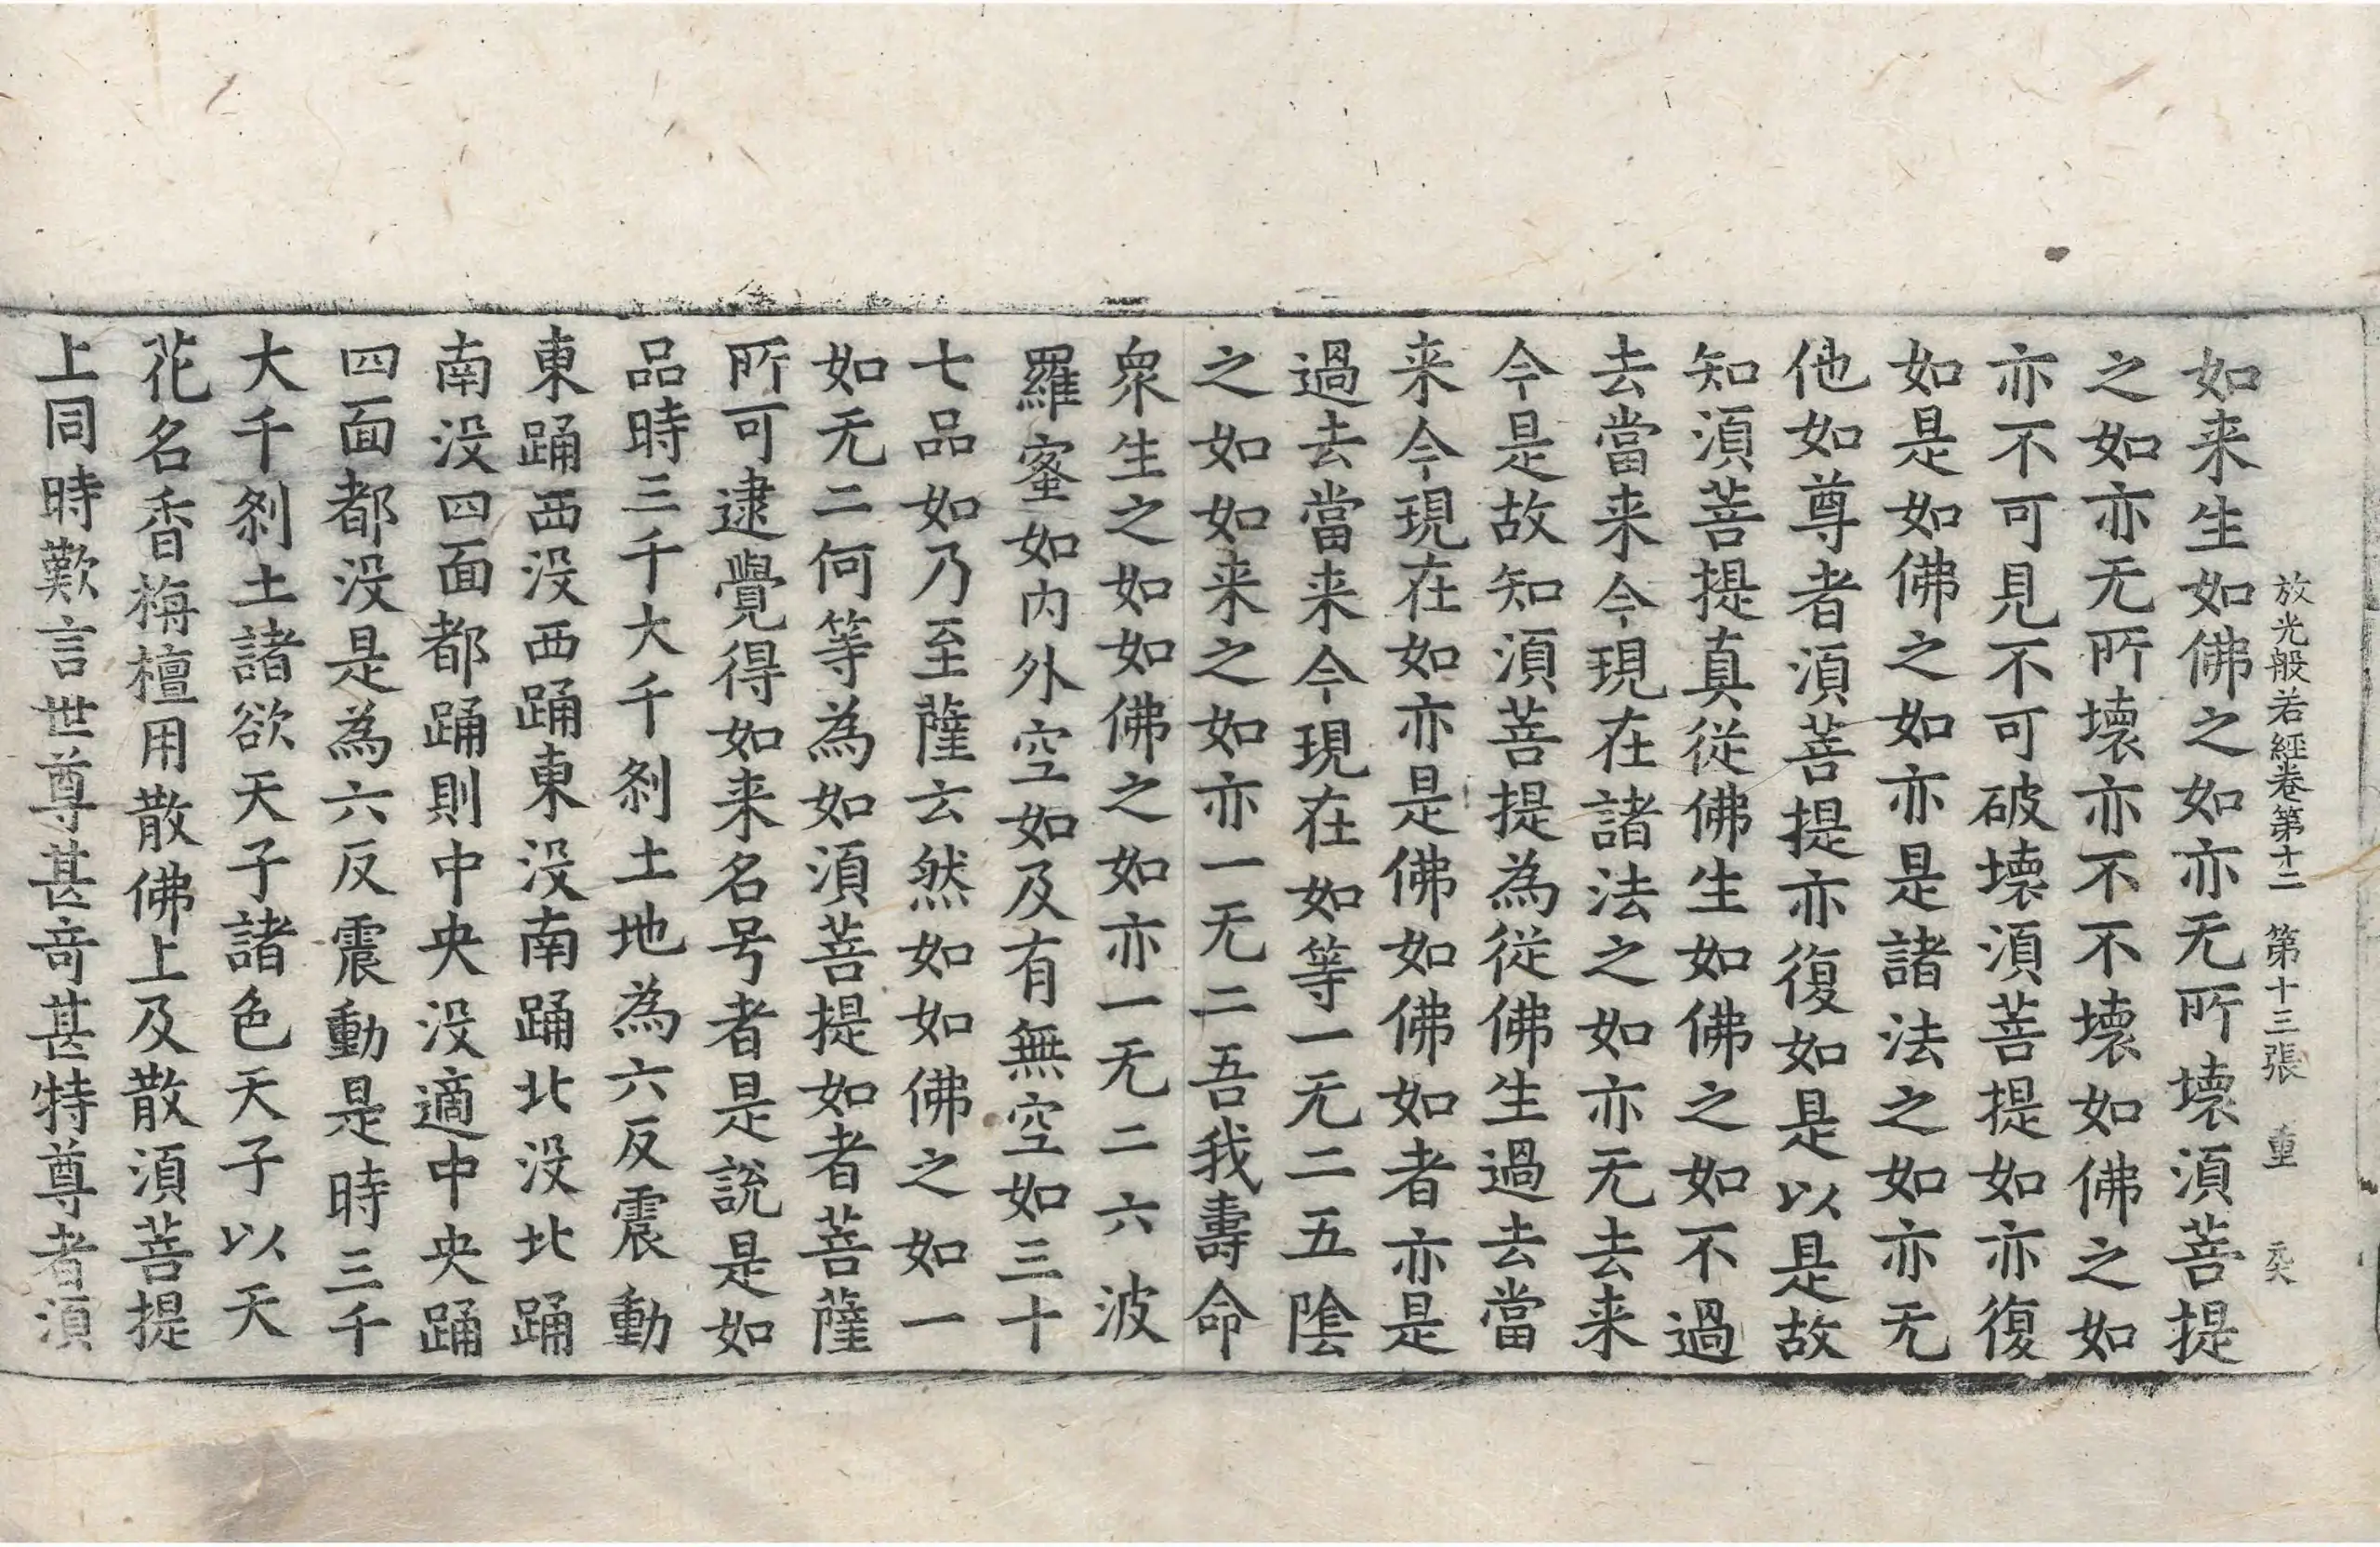 放光般若經卷第十二　第十三張　重
如来生如佛之如亦无所壊湏菩提
之如亦无所壊亦不不壊如佛之如
亦不可見不可破壊湏菩提如亦復
如是如佛之如亦是諸法之如亦无
他如尊者湏菩提亦復如是以是故
知湏菩提真從佛生如佛之如不過
去當来今現在諸法之如亦无去来
今是故知湏菩提為從佛生過去當
来今現在如亦是佛如佛如者亦是
過去當来今現在如等一无二五陰
之如如来之如亦一无二吾我壽命
衆生之如如佛之如亦一无二六波
羅蜜如内外空如及有無空如三十
七品如乃至薩云然如如佛之如一
如无二何等為如湏菩提如者菩薩
所可逮覺得如来名号者是說是如
品時三千大千刹土地為六反震動
東踊西没西踊東没南踊北没北踊
南没四面都踊則中央没適中央踊
四面都没是為六反震動是時三千
大千刹土諸欲天子諸色天子以天
花名香栴檀用散佛上及散湏菩提
上同時歎言世尊甚竒甚特尊者湏